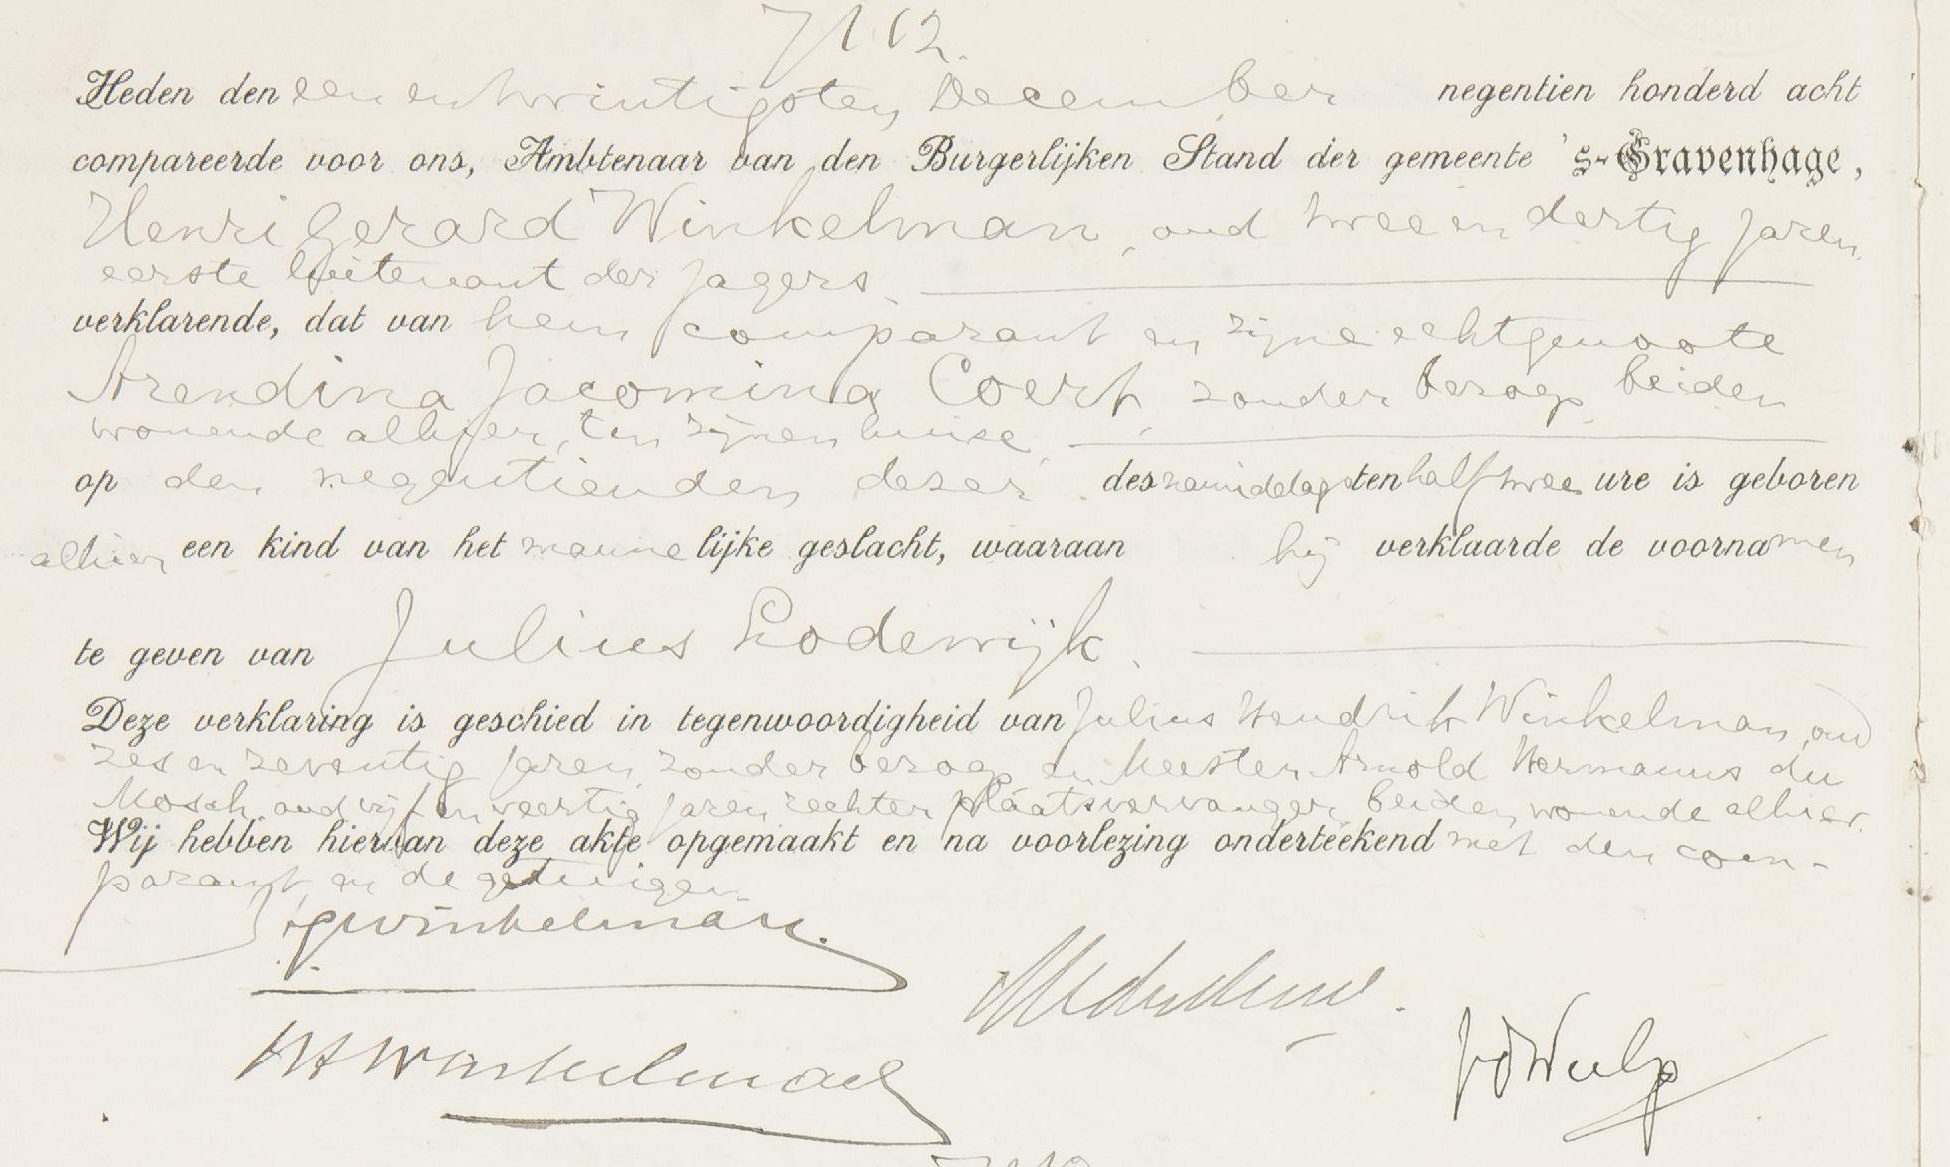 Heden den een en twintigsten December negentien honderd acht
compareerde voor ons, Ambtenaar van den Burgerlijken Stand der gemeente 's-Gravenhage,
Henri Gerard Winkelman, oud twee en dertig jaren,
eerste luitenant der jagers,
verklarende, dat van hem comparant en zijne echtgenoote
Arendina Jacomina Coert, zonder beroep, beiden
wonende alhier, ten zijnen huise,
op den negentienden dezer des namiddags ten half twee ure is geboren
alhier een kind van het mannelijke geslacht, waaraan hij verklaarde de voornamen
te geven van Julius Lodewijk.
Deze verklaring is geschied in tegenwoordigheid van Julius Hendrik Winkelman, oud
zes en zeventig jaren, zonder beroep en Meester Arnold Hermanus du
Mosch, oud vijf en veertig jaren, rechter plaatsvervanger, beiden wonende alhier.
Wij hebben hiervan deze akte opgemaakt en na voorlezing onderteekend met den com-
parant en de getuigen.
HGWinkelman.
JHWinkelman
vdWulp